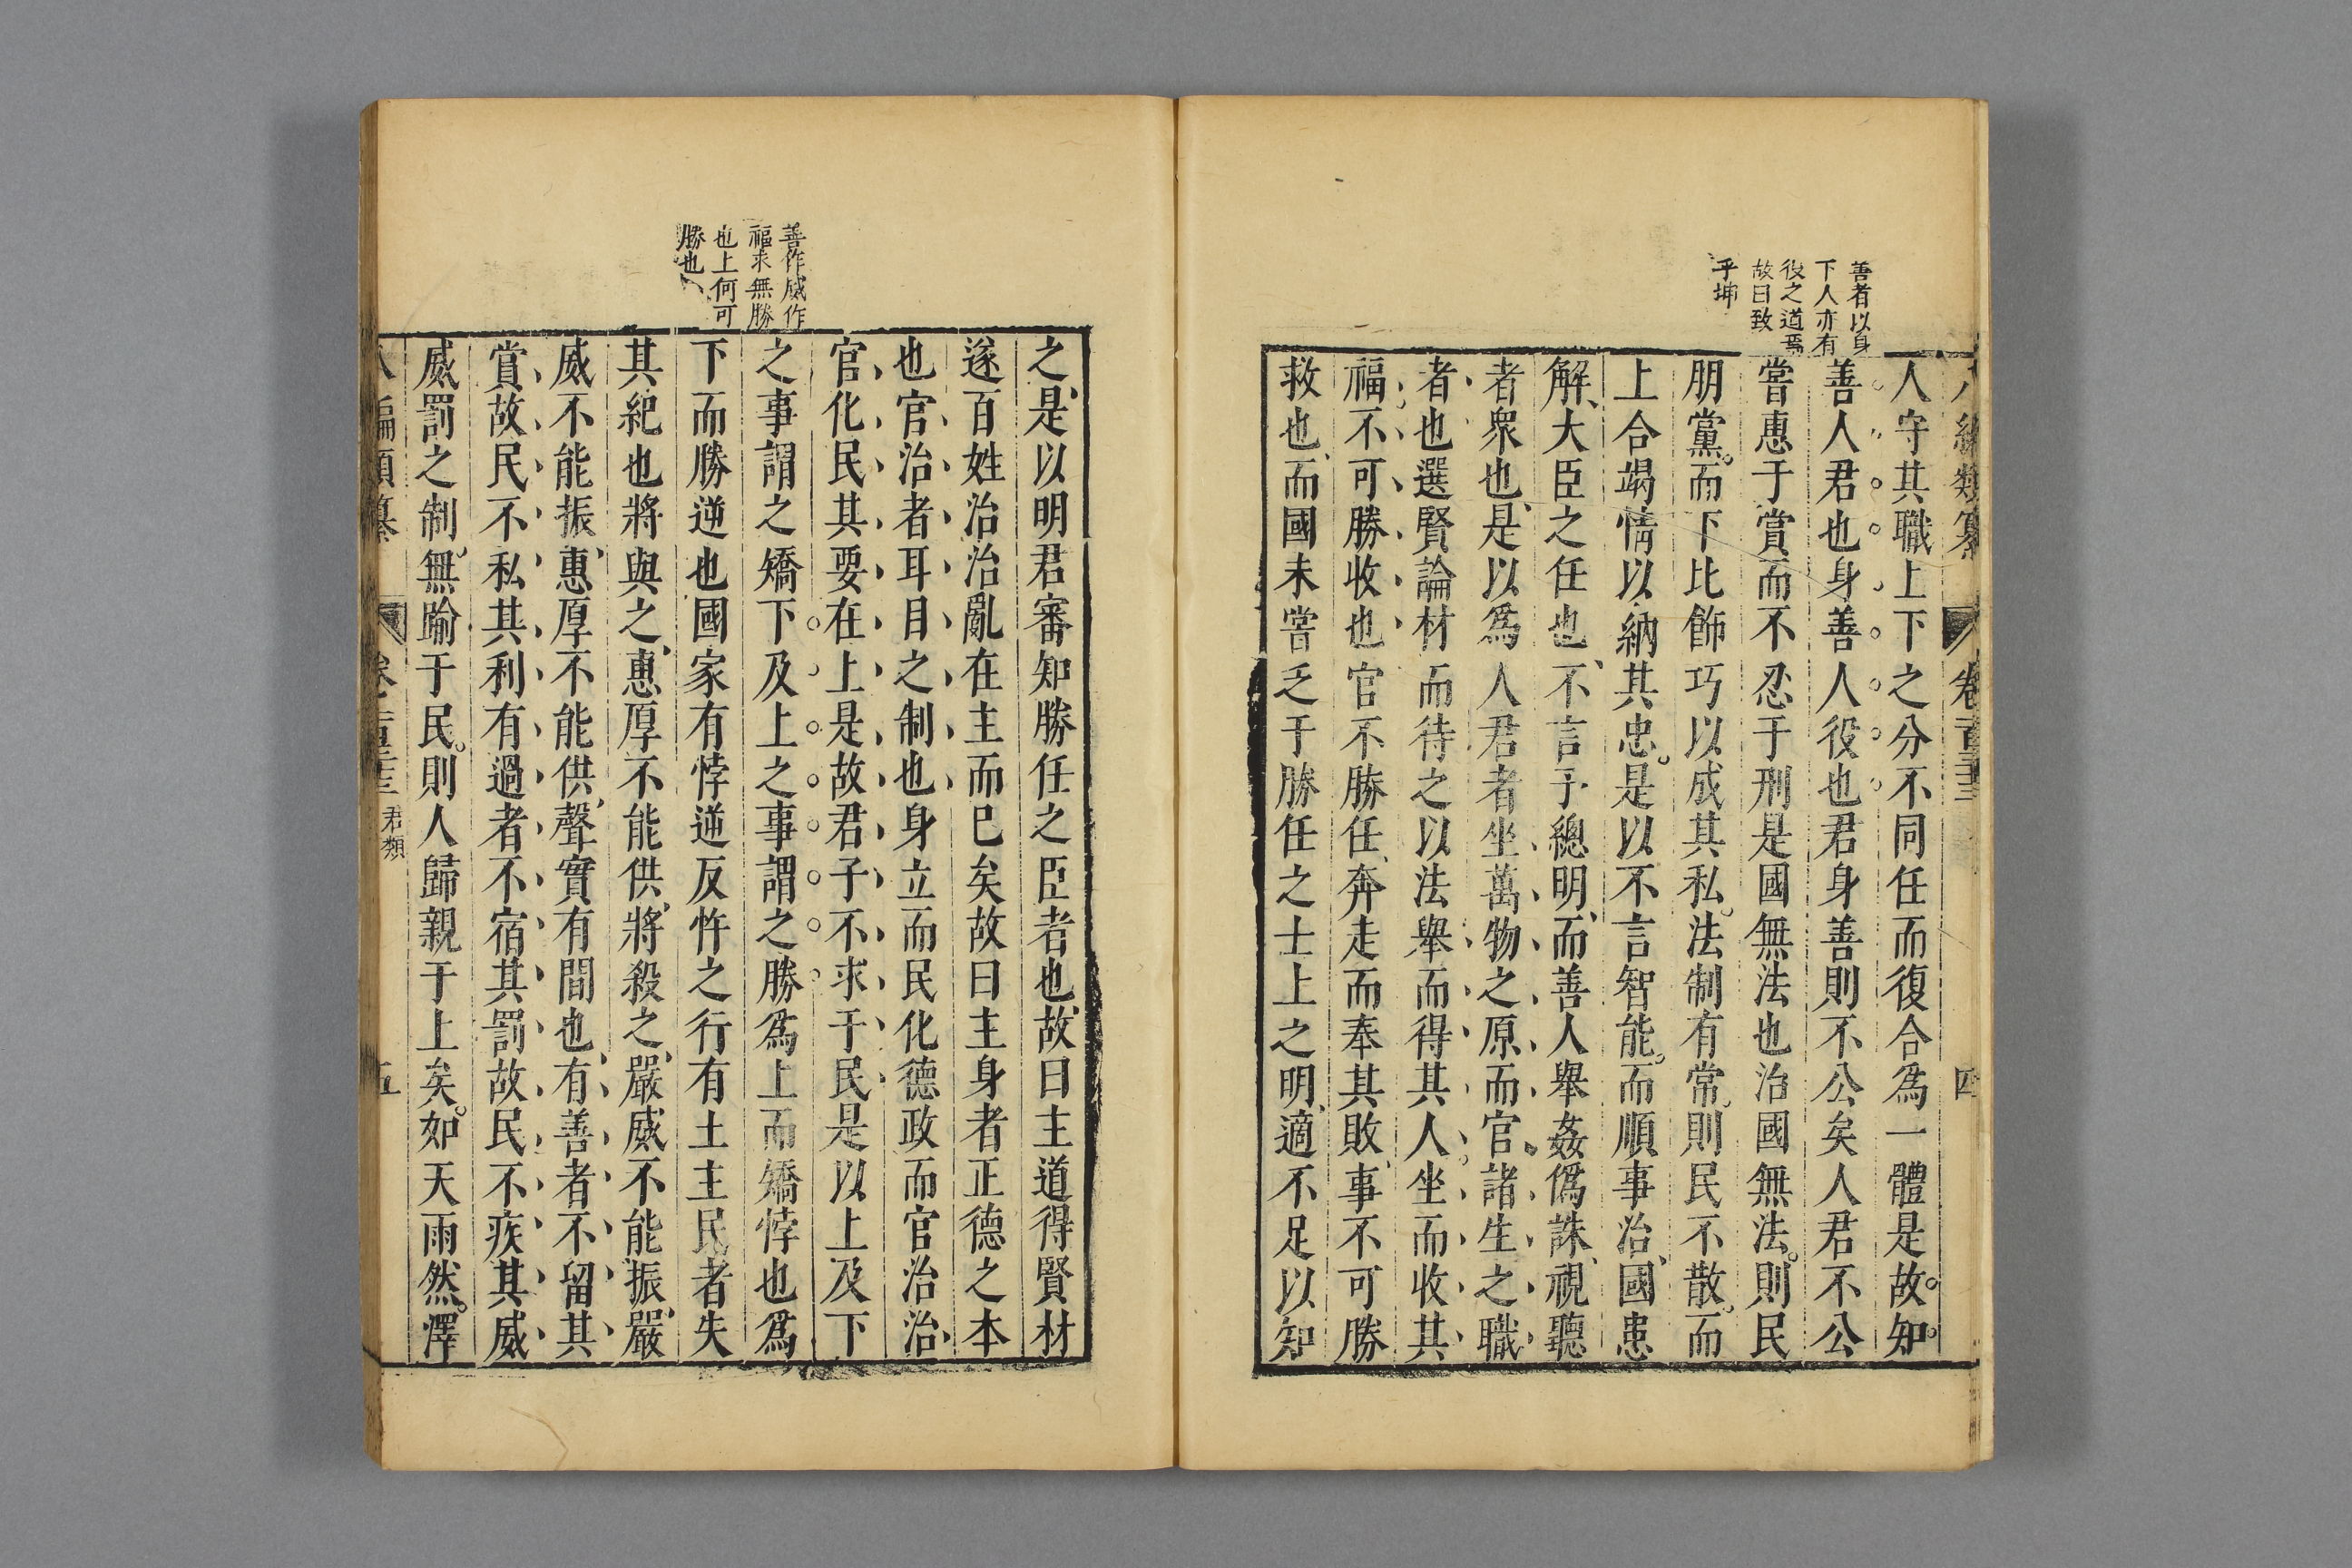 善者以身
下人亦有
役之道焉
故曰致
乎坤
八編類纂
卷一百二十三
四
人守其職上下之分不同任而復合爲一體是故知
善人君也身善人役也君身善則不公矣人君不公
嘗惠于賞而不忍于刑是國無法也治國無法則民
朋黨而下比飾巧以成其私法制有常則民不散而
上合竭情以納其忠是以不言智能而順事治國患
解大臣之任也不言于總明而善人舉姦僞誅視聽
者衆也是以爲人君者坐萬物之原而官諸生之職
者也選賢論材而待之以法舉而得其人坐而收其
福不可勝收也官不勝任奔走而奉其敗事不可勝
救也而國未嘗乏于勝任之士上之明適不足以知
善作威作
福求無勝
也上何可
勝也
之是以明君審知勝任之臣者也故曰主道得賢材
遂百姓治治亂在主而已矣故曰主身者正德之本
也官治者耳目之制也身立而民化德政而官治治
官化民其要在上是故君子不求于民是以上及下
之事謂之矯下及上之事謂之勝爲上而矯悖也爲
下而勝逆也國家有悖逆反忤之行有土主民者失
其紀也將與之惠厚不能供將殺之嚴威不能振嚴
威不能振惠厚不能供聲實有間也有善者不留其
賞故民不私其利有過者不宿其罰故民不疾其威
威罰之制無踰于民則人歸親于上矣如天雨然澤
八編類纂
君類
五